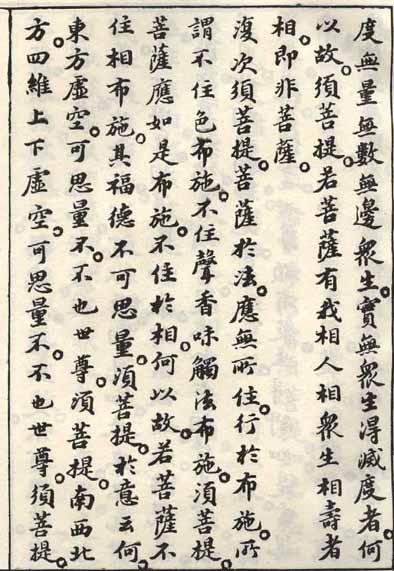 度無量無數無邊衆生。實無衆生得滅度者。何
以故。須菩提。若菩薩有我相人相衆生相壽者
相。即非菩薩。
復次須菩提。菩薩於法。應無所住。行於布施。所
謂不住色布施。不住聲香味觸法布施。須菩提。
菩薩應如是布施。不住於相。何以故。若菩薩不
住相布施。其福德不可思量。須菩提。於意云何。
東方虛空。可思量不。不也世尊。須菩提。南西北
方四維上下虛空。可思量不。不也世尊。須菩提。